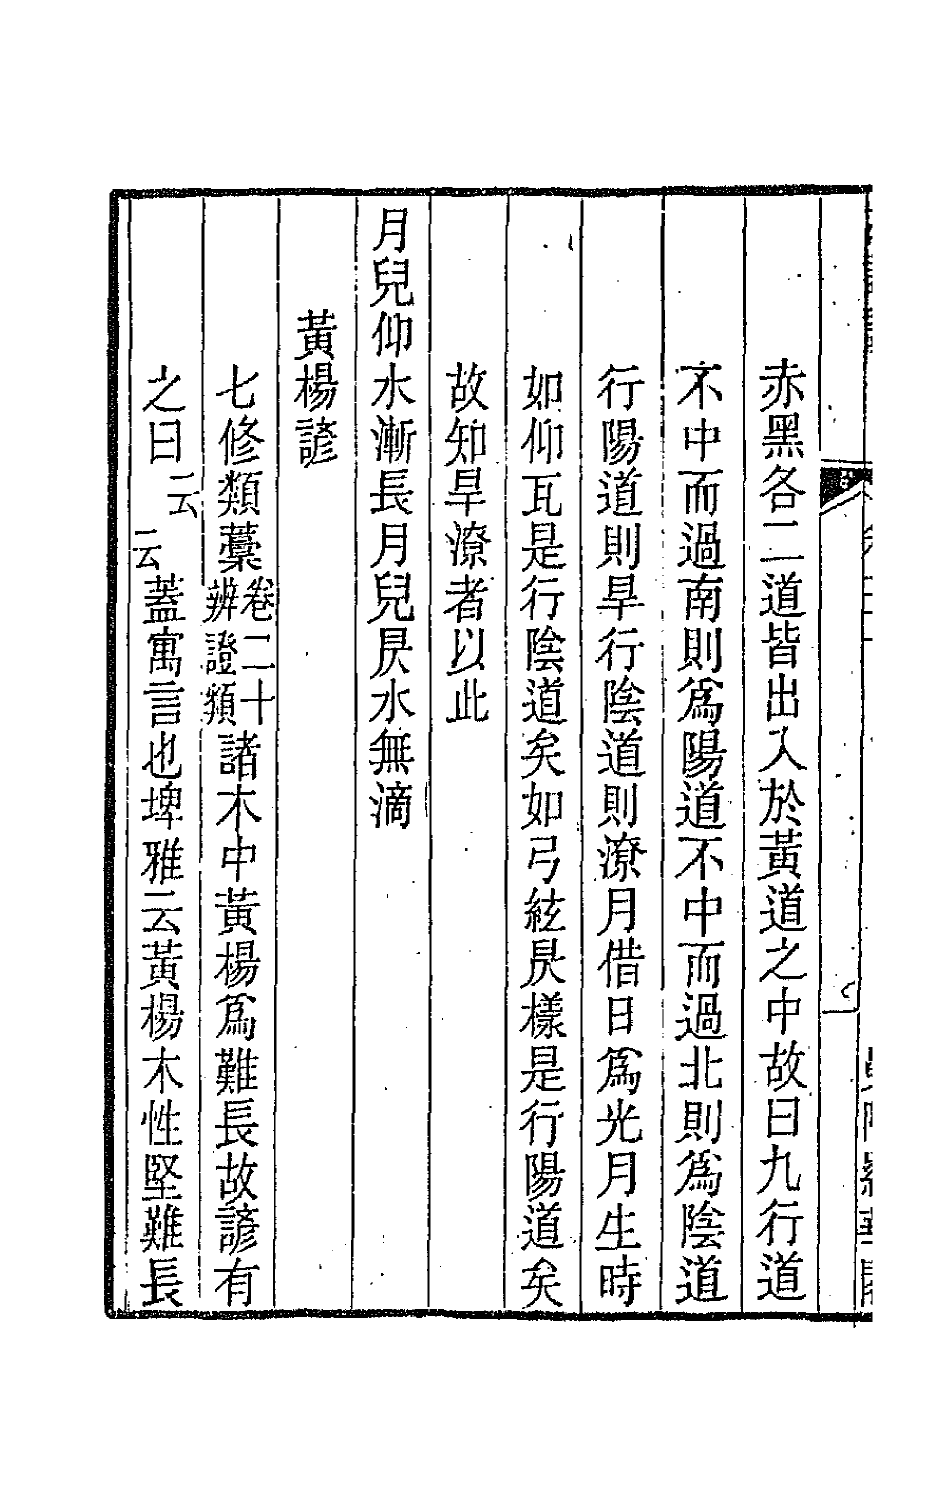 赤黑各二道皆出入於黃道之中故曰九行道
不中而過南則爲陽道不中而過北則爲陰道
行陽道則旱行陰道則潦月借日爲光月生時
如仰瓦是行陰道矣如弓絃昃樣是行陽道矣
故知旱潦者以此
月兒仰水漸長月兒昃水無滴
黃楊諺
七修類藁卷二十辨證類諸木中黃楊爲難長故諺有
之曰云云蓋寓言也埤雅云黃楊木性堅難長